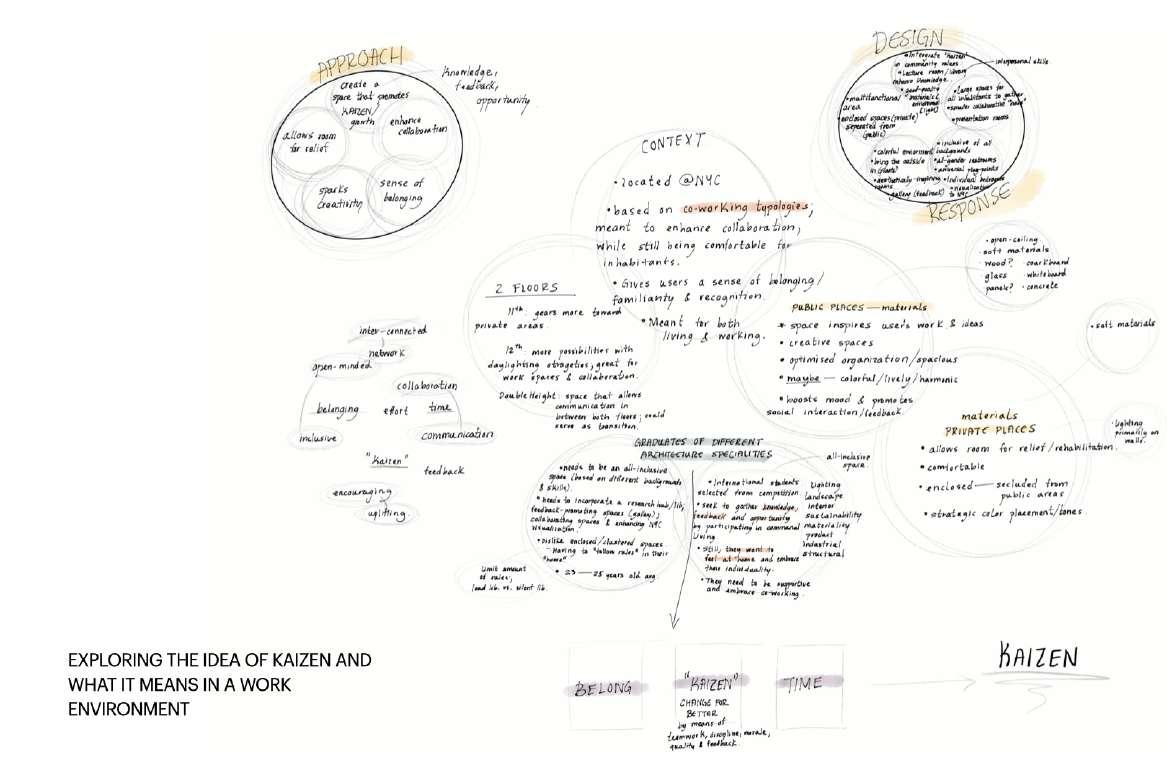 APPROACH
create a
space that promotes
KAIZEN
growth
enhance
collaboration
allows room
for relief
sparks
creativity
sense of
belonging
Knowledge,
feedback,
opportunity
DESIGN
• Intergrate "kaizen"
in community rulers
• Lecture room/library
enhance knowledge.
interpersonal skills
• multifunctional
area
• good-quality
materials &
environment
(light)
• enclosed spaces (private)
seperated from
(public)
• Large spaces for
all inhabitants to gather
• smaller collaborative "hubs"
• presentation rooms
• colorful enviorment
• bring the outside
in (plants)
• aesthetically-inspiring
spaces
gallery (feedback)
• inclusive of all
backgrounds
• all-gender restrooms
• universal plug-points
• Individual bedrooms
• visualization
to NYC
RESPONSE
CONTEXT
• located @NYC
• based on co-working typologies;
meant to enhance collaboration,
while still being comfortable for
inhabitants.
• Gives users a sense of belonging/
familiarity & recognition.
• Meant for both
living & working.
• open-ceiling
• soft materials
wood? • coarkboard
glass • whiteboard
panels? • concrete
2 FLOORS
11th: gears more toward
private areas.
12th more possibilities with
daylighting strageties; great for
work spaces & collaboration.
Double Height: space that allows
communication in
between both floors; could
serve as transiton.
PUBLIC PLACES — materials
* space inspires user's work & ideas
• creative spaces
• optimised organization/spacious
• maybe — colorful/lively/harmonic
• boosts mood & promotes
social interaction/feedback.
• soft materials
inter-connected
network
open-minded
collaboration
belonging effort time
inclusive
communication
"Kaizen" feedback
encouraging
uplifting.
materials
PRIVATE PLACES
• allows room for relief/rehabilitation.
• comfortable
• enclosed — secluded from
public areas
• strategic color placement/tones
• Lighting
primarily on
walls.
GRADUATES OF DIFFERENT
ARCHITECTURE SPECIALITIES
• needs to be an all-inclusive
space (based on different backgrounds
& skills).
• needs to incorporate a research hub/lib,
feedback-promoting spaces (galley);
collaborating spaces & enhancing NYC
visualization
• Dislike enclosed/clustered spaces
- Having to "follow rules" in their
"home"
• 23 — 25 years old avg
Limit amount
of rules;
loud lib. vs. silent lib.
all-inclusive
space.
• International students
selected from competition
• seek to gather knowledge,
feedback and opportunity
by participating in communal
living.
• Still, they want to
feel at home and embrace
their individuality.
• They need to be supportive
and embrace co-working.
Lighting
landscape
interior
sustainability
materiality
product
industrial
structural
EXPLORING THE IDEA OF KAIZEN AND
WHAT IT MEANS IN A WORK
ENVIRONMENT
BELONG
"KAIZEN"
CHANGE FOR
BETTER
by means of
teamwork, discipline, morale,
quality & feedback.
TIME
KAIZEN